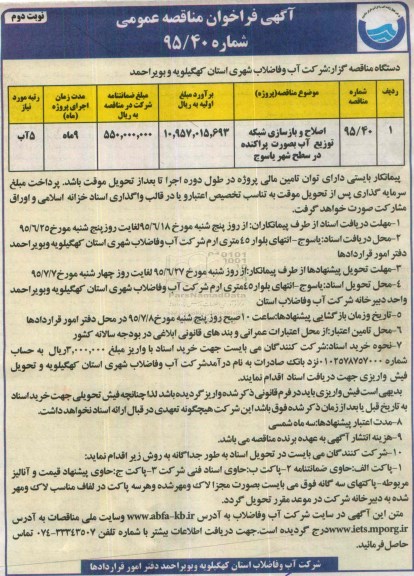 آگهی فراخوان مناقصه عمومی
شماره ۹۵/۴۰
نوبت دوم
دستگاه مناقصه گزار:شرکت آب وفاضلاب شهری استان کهگیلویه وبویراحمد
ردیف
شماره مناقصه
موضوع مناقصه(پروژه)
برآورد مبلغ اولیه به ریال
مبلغ ضمانتنامه شرکت در مناقصه به ریال
مدت زمان اجرای پروژه (ماه)
رتبه مورد نیاز
۱
۹۵/۴۰
اصلاح و بازسازی شبکه توزیع آب بصورت پراکنده در سطح شهر یاسوج
۱۰,۹۵۷,۰۱۵,۶۹۳
۵۵۰,۰۰۰,۰۰۰
۹ماه
۵آب
پیمانکار بایستی دارای توان تامین مالی پروژه در طول دوره اجرا تا بعداز تحویل موقت باشد. پرداخت مبلغ
سرمایه گذاری پس از تحویل موقت به تناسب تخصیص اعتبارو یا در قالب واگذاری اسناد خزانه اسلامی و اوراق
مشارکت صورت خواهد گرفت.
۱-مهلت دریافت اسناد از طرف پیمانکاران: از روز پنج شنبه مورخ۹۵/۶/۱۸لغایت روز پنج شنبه مورخ۹۵/۶/۲۵
۲-محل دریافت اسناد:یاسوج-انتهای بلوار۴۵متری ارم شرکت آب وفاضلاب شهری استان کهگیلویه وبویراحمد
دفتر امور قراردادها
۳-مهلت تحویل پیشنهادها از طرف پیمانکار:از روز شنبه مورخ ۹۵/۶/۲۷ لغایت روز چهار شنبه مورخ۹۵/۷/۷
۴-محل تحویل اسناد:یاسوج-انتهای بلوار۴۵متری ارم شرکت آب وفاضلاب شهری استان کهگیلویه وبویراحمد
واحد دبیرخانه شرکت آب وفاضلاب استان
۵-تاریخ وزمان بازگشایی پیشنهادها:ساعت ۱۰صبح روز پنج شنبه مورخ۹۵/۷/۸ در محل دفتر امور قراردادها
۶-محل تامین اعتبار:از محل اعتبارات عمرانی و بند های قانونی ابلاغی در بودجه سالانه کشور
۷-نحوه خرید اسناد:شرکت کنندگان می بایست جهت خرید اسناد با واریز مبلغ ۳,۰۰۰,۰۰۰ریال به حساب
شماره ۰۱۰۲۵۷۸۷۵۷۰۰۰نزد بانک صادرات به نام درآمدشرکت آب وفاضلاب شهری استان کهگیلویه وبویراحمد و تحویل
فیش واریزی جهت دریافت اسناد اقدام نمایند.
بدیهی است فیش واریزی باید در فرم قانونی ذکر شده واریز گردیده باشد لذا چنانچه فیش تحویلی جهت خرید اسناد
به تاریخ قبل یا بعد از زمان ذکر شده فوق باشد این شرکت هیچگونه تعهدی در قبال ارائه اسناد نخواهد داشت.
۸-مدت اعتبار پیشنهادها:سه ماه شمسی
۹-هزینه انتشار آگهی به عهده برنده مناقصه می باشد.
۱۰-شرکت کنندگان می بایست در تحویل اسناد به طور جداگانه به روش زیر اقدام نماید:
۱-پاکت الف:حاوی ضمانتنامه ۲-پاکت ب:حاوی اسناد فنی شرکت ۳-پاکت ج:حاوی پیشنهاد قیمت و آنالیز
مربوطه-پاکتهای سه گانه فوق می بایست بصورت مجزا لاک ومهر شده وهر سه پاکت در لفاف مناسب لاک ومهر
شده به دبیرخانه شرکت در موعد مقرر تحویل گردد.
متن این آگهی در سایت شرکت آب وفاضلاب به آدرس www.abfa-kb.ir وسایت ملی مناقصات به آدرس
www.iets.mporg.irدرج گردیده است.جهت دریافت اطلاعات بیشتر با شماره تلفن ۳۳۳۴۳۵۰۷-۰۷۴ تماس
حاصل فرمائید.
شرکت آب وفاضلاب استان کهگیلویه وبویراحمد دفتر امور قراردادها